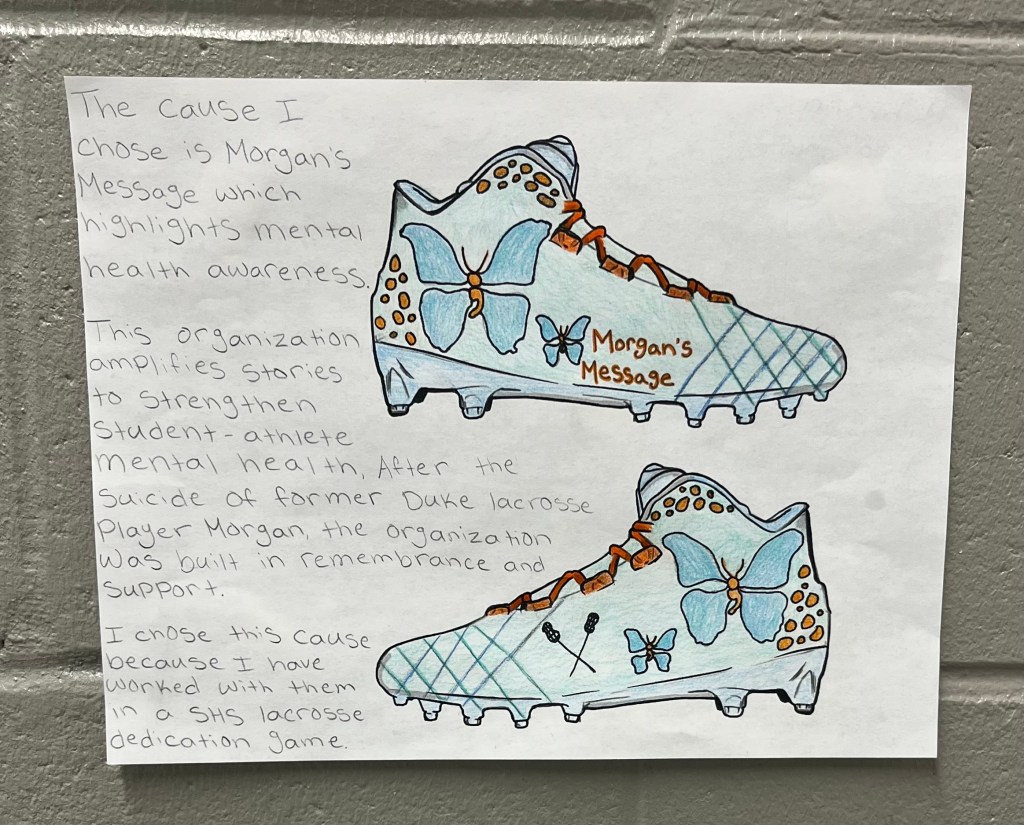 The cause I
chose is Morgan's
Message which
highlights mental
health awareness.
This organization
amplifies stories
to strengthen
student-athlete
mental health. After the
suicide of former Duke lacrosse
Player Morgan, the organization
was built in remembrance and
support.
I chose this cause
because I have
worked with them
in a SHS lacrosse
dedication game.
Morgan's
Message